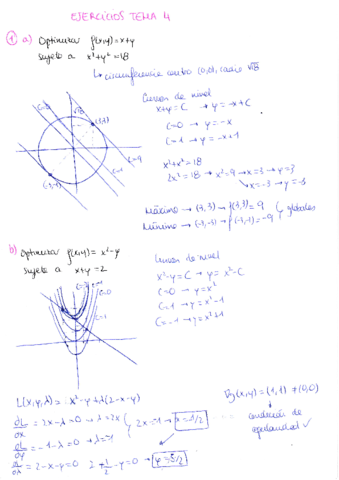 EJERCICIOS TEMA 4
1 a) Optimizar f(x,y)=x+y
Sujeto a x²+y²=18
↳ circunferencia centro (0,0), radio √18
Curvas de nivel
x+y=C → y=-x+C
C=0 → y=-x
C=1 → y=-x+1
x²+x²=18
2x²=18 → x²=9 → x=3 → y=3
x=-3 → y=-3
(3,3)
(-3,-3)
C=9
Máximo → (3,3) → f(3,3)=9
Mínimo → (-3,-3) → f(-3,-3)=-9
globales
b) Optimizar f(x,y)= x²-y
Sujeto a x+y=2
Curvas de nivel
x²-y=C → y=x²-C
C=0 → y=x²
C=1 → y=x²-1
C=-1 → y=x²+1
L(x,y,λ)= x²-y+λ(2-x-y)
∂L/∂x = 2x-λ=0 → λ=2x
2x=-1 →
∂L/∂y = -1-λ=0 → λ=-1
∂L/∂λ = 2-x-y=0
2+1/2-y=0 → y=5/2
∇g(x,y)=(1,1) ≠(0,0)
condición de
regularidad ✓